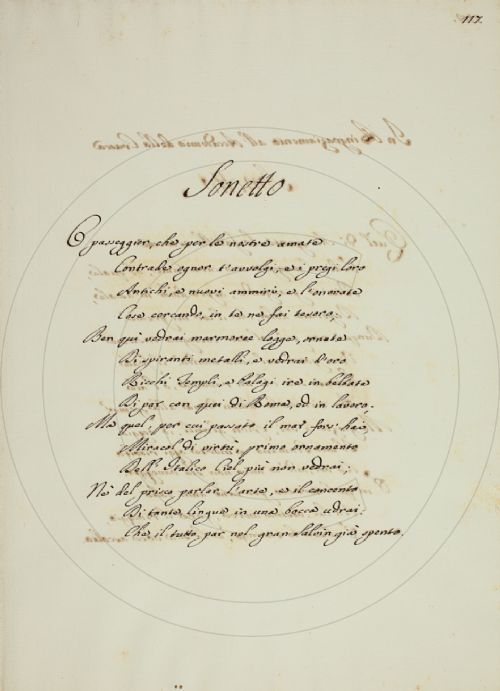 117.
Sonetto
O passeggier, che per le nostre amate
Contrade ognor t'avvolgi, e i pregi loro
Antichi, e nuovi ammiri, e l'onorate
Cose cercando, in te ne fai tesoro;
Ben qui vedrai marmoree logge, ornate
Di spiranti metalli, e vedrai l'oro
Ricchi Templi, e Palagi ire in beltate
Di par con quei di Roma, ed in lavoro;
Ma quel, per cui passato il mar fors' hai,
Miracol di virtù, primo ornamento
Dell' Italico Ciel, più non vedrai;
Nè del prisco parlar l'arte, e il concento
Di tante lingue in una bocca udrai;
Che il tutto, par nel gran Salvin già spento.